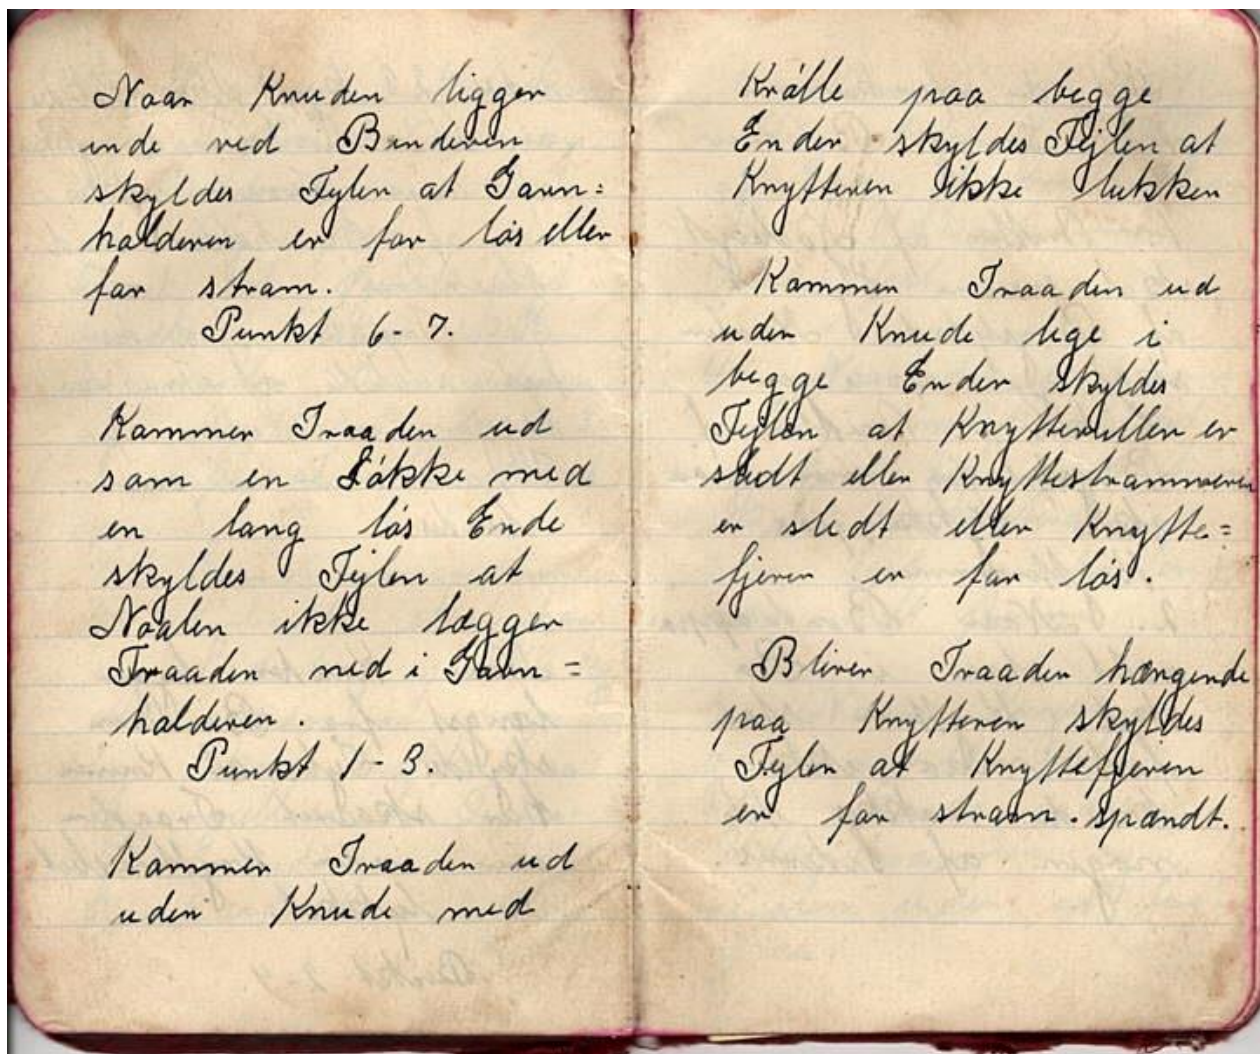 Naar Knuden ligger
inde ved Binderen
skyldes Fejlen at Garn=
holderen er for løs eller
for stram.
Punkt 6-7.
Kommer Traaden ud
som en Løkke med
en lang løs Ende
skyldes Fejlen at
Naalen ikke lægger
Traaden ned i Garn=
holderen.
Punkt 1-3.
Kommer Traaden ud
uden Knude med
Krølle paa begge
Ender skyldes Fejlen at
Knytteren ikke lukker
Kommer Traaden ud
uden Knude lige i
begge Ender skyldes
Fejlen at Knytterullen er
slidt eller Knyttestrammeren
er slidt eller Knytte=
fjeren er for løs.
Bliver Traaden hængende
paa Knytteren skyldes
Fejlen at Knyttefjeren
er for stram. spændt.